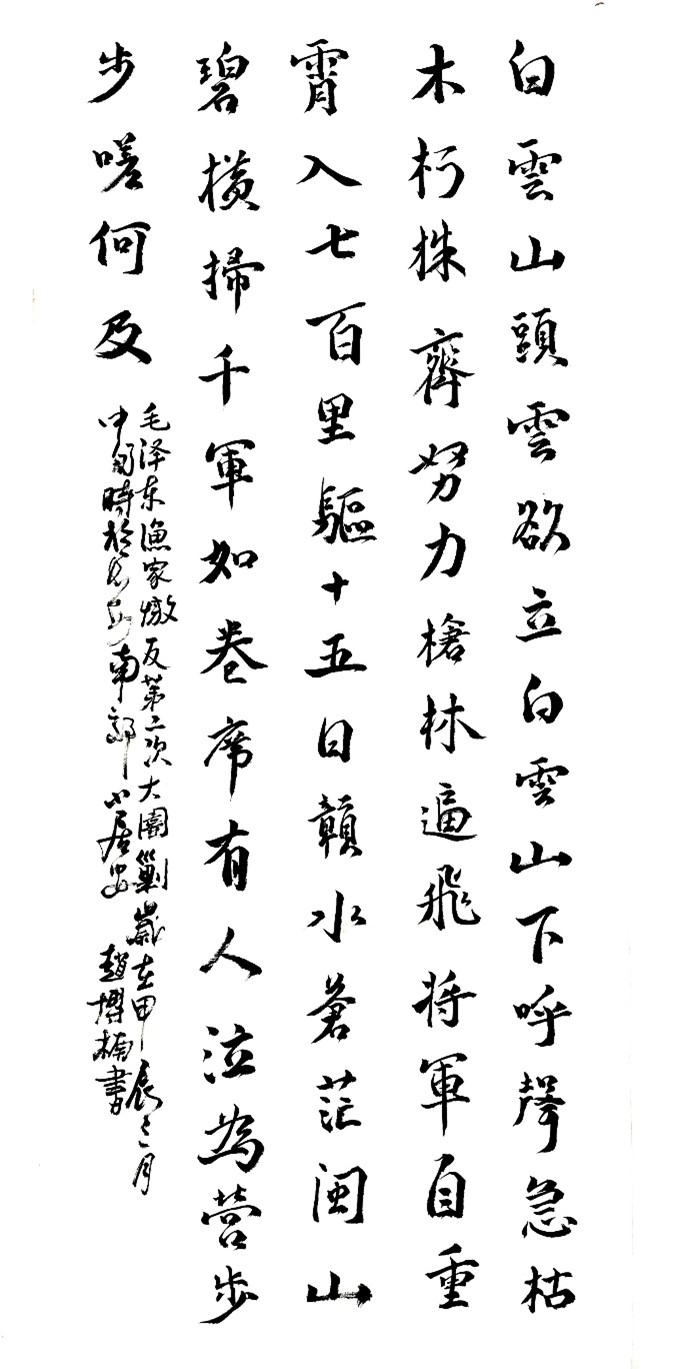 白雲山頭雲欲立白雲山下呼聲急枯
木朽株齊努力槍林逼飛将軍自重
霄入七百里驅十五日贛水蒼茫閩山
碧横掃千軍如卷席有人泣為营步
步嗟何及
毛泽东漁家傲反第二次大圍剿歲在甲辰三月
中旬時於長安南郭小居安趙博楠書